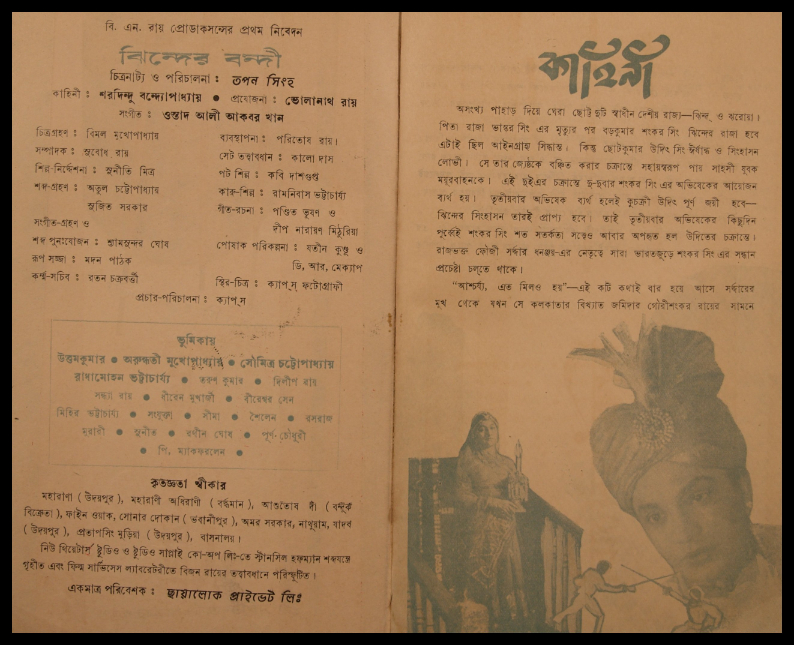 বি. এন. রায় প্রোডাকসন্সের প্রথম নিবেদন
ঝিন্দের বন্দী
চিত্রনাট্য ও পরিচালনা : তপন সিংহ
কাহিনী : শরদিন্দু বন্দ্যোপাধ্যায় ● প্রযোজনা : ভোলানাথ রায়
সংগীত : ওস্তাদ আলী আকবর খান
চিত্রগ্রহণ : বিমল মুখোপাধ্যায়
সম্পাদক : সুবোধ রায়
শিল্প-নির্দেশনা : সুনীতি মিত্র
শব্দ-গ্রহণ : অতুল চট্টোপাধ্যায়
সুজিত সরকার
সংগীত-গ্রহণ ও
শব্দ পুনঃযোজন : শ্যামসুন্দর ঘোষ
রূপ সজ্জা : মদন পাঠক
কর্ম্ম-সচিব : রতন চক্রবর্ত্তী
ব্যবস্থাপনা : পরিতোষ রায়।
সেট তত্বাবধান : কালো দাস
পট শিল্প : কবি দাশগুপ্ত
কারু-শিল্প : রামনিবাস ভট্টাচার্য্য
গীত-রচনা : পণ্ডিত ভূষণ ও
দীপ নারায়ণ মিঠুরিয়া
পোষাক পরিকল্পনা : যতীন কুণ্ডু ও
ডি, আর, মেক্যাপ
স্থির-চিত্র : ক্যাপ্স্ ফটোগ্রাফী
প্রচার-পরিচালনা : ক্যাপ্স
ভূমিকায়
উত্তমকুমার ● অরুন্ধতী মুখোপাধ্যায় ● সৌমিত্র চট্টোপাধ্যায়
রাধামোহন ভট্টাচার্য্য ● তরুণ কুমার ● দিলীপ রায়
সন্ধ্যা রায় ● ধীরেন মুখার্জী ● বীরেশ্বর সেন
মিহির ভট্টাচার্য্য ● সংযুক্তা ● সীমা ● শৈলেন ● রসরাজ
মুরারী ● সুনীত ● রণীন ঘোষ ● পূর্ণ-চৌধুরী
● পি. ম্যাকফরলেন ●
কৃতজ্ঞতা স্বীকার
মহারাণা ( উদয়পুর ), মহারাণী অধিরাণী ( বর্দ্ধমান ), আশুতোষ দাঁ ( বন্দুক
বিক্রেতা ), ফাইন ওয়াক, সোনার দোকান ( ভবানীপুর ), অমর সরকার, নাথুরাম, যাদব
( উদয়পুর ), প্রতাপসিং মুড়িয়া ( উদয়পুর ), বাসনালয়।
নিউ থিয়েটার্স ষ্টুডিও ও ষ্টুডিও সাপ্লাই কো-অপ লিঃ-তে স্টানসিল হফম্যান শব্দযন্ত্রে
গৃহীত এবং ফিল্ম সার্ভিসেস ল্যাবরেটরীতে বিজন রায়ের তত্বাবধানে পরিস্ফুটিত।
একমাত্র পরিবেশক : ছায়ালোক প্রাইভেট লিঃ
কাহিনী
অসংখ্য পাহাড় দিয়ে ঘেরা ছোট্ট দুটি স্বাধীন দেশীয় রাজ্য—ঝিন্দ্ ও ঝরোয়া।
পিতা রাজা ভাস্কর সিং এর মৃত্যুর পর বড়কুমার শংকর সিং ঝিন্দের রাজা হবে
এটাই ছিল আইনগ্রাহ্য সিদ্ধান্ত। কিন্তু ছোটকুমার উদিৎ সিং ঈর্ষান্ধ ও সিংহাসন
লোভী। সে তার জ্যেষ্ঠকে বঞ্চিত করার চক্রান্তে সহায়স্বরূপ পায় সাহসী যুবক
ময়ূরবাহনকে। এই দুইএর চক্রান্তে দু-দুবার শংকর সিং এর অভিষেকের আয়োজন
ব্যর্থ হয়। তৃতীয়বার অভিষেক ব্যর্থ হলেই কুচক্রী উদিৎ পূর্ণ জয়ী হবে—
ঝিন্দের সিংহাসন তারই প্রাপ্য হবে। তাই তৃতীয়বার অভিষেকের কিছুদিন
পূর্ব্বেই শংকর সিং শত সতর্কতা সত্ত্বেও আবার অপহৃত হল উদিতের চক্রান্তে।
রাজভক্ত ফৌজী সর্দ্দার ধনঞ্জয়-এর নেতৃত্বে সারা ভারতজুড়ে শংকর সিং এর সন্ধান
প্রচেষ্টা চলতে থাকে।
“আশ্চর্য্য, এত মিলও হয়”—এই কটি কথাই বার হয়ে আসে সর্দ্দারের
মুখ থেকে যখন সে কলকাতার বিখ্যাত জমিদার গৌরীশংকর রায়ের সামনে